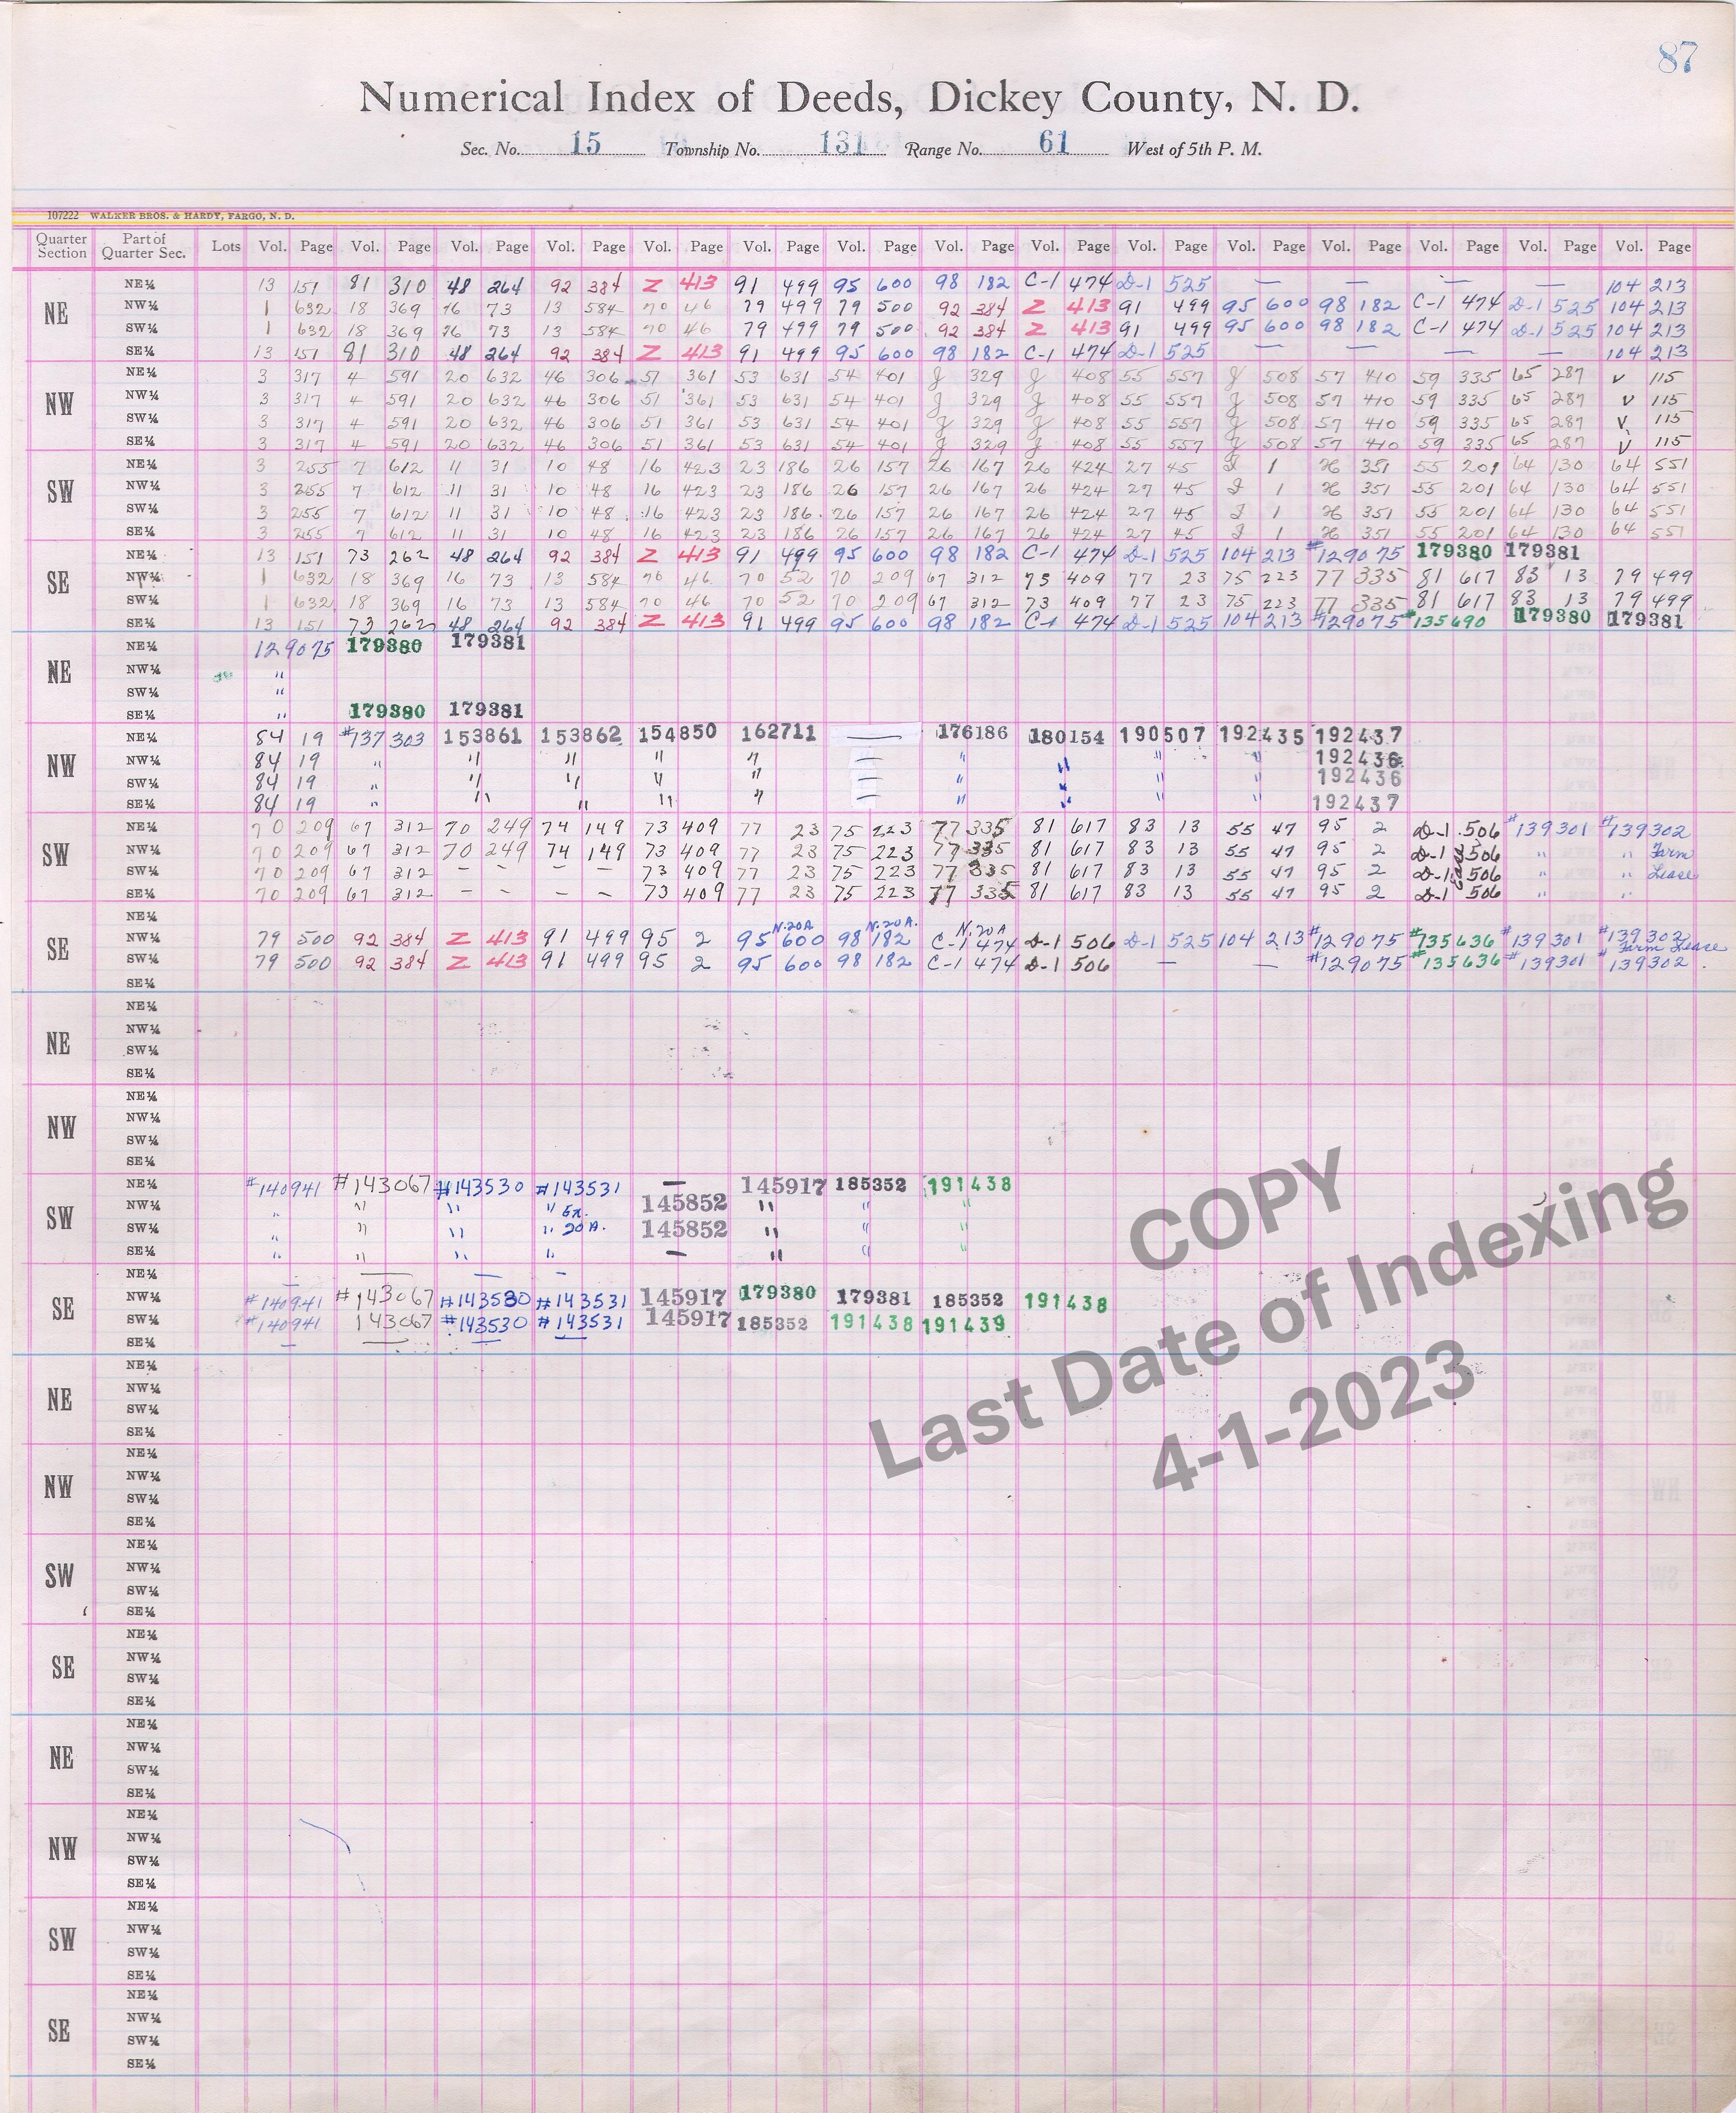 87
Numerical Index of Deeds, Dickey County, N. D.
Sec. No. 15 Township No. 131 Range No. 61 West of 5th P. M.
107222 WALKER BROS. & HARDY, FARGO, N. D.
Quarter Section Part of Quarter Sec. Lots Vol. Page Vol. Page Vol. Page Vol. Page Vol. Page Vol. Page Vol. Page Vol. Page Vol. Page Vol. Page Vol. Page Vol. Page Vol. Page Vol. Page Vol. Page
NE
NE¼ 13 151 81 310 48 264 92 384 Z 413 91 499 95 600 98 182 C-1 474 D-1 525 — — — — 104 213
NW¼ 1 632 18 369 16 73 13 584 70 46 79 499 79 500 92 384 Z 413 91 499 95 600 98 182 C-1 474 D-1 525 104 213
SW¼ 1 632 18 369 16 73 13 584 70 46 79 499 79 500 92 384 Z 413 91 499 95 600 98 182 C-1 474 D-1 525 104 213
SE¼ 13 151 81 310 48 264 92 384 Z 413 91 499 95 600 98 182 C-1 474 D-1 525 — — — — 104 213
NW
NE¼ 3 317 4 591 20 632 46 306 51 361 53 631 54 401 J 329 J 408 55 557 J 508 57 410 59 335 65 287 V 115
NW¼ 3 317 4 591 20 632 46 306 51 361 53 631 54 401 J 329 J 408 55 557 J 508 57 410 59 335 65 287 V 115
SW¼ 3 317 4 591 20 632 46 306 51 361 53 631 54 401 J 329 J 408 55 557 J 508 57 410 59 335 65 287 V 115
SE¼ 3 317 4 591 20 632 46 306 51 361 53 631 54 401 J 329 J 408 55 557 J 508 57 410 59 335 65 287 V 115
SW
NE¼ 3 255 7 612 11 31 10 48 16 423 23 186 26 157 26 167 26 424 27 45 I 1 H 351 55 201 64 130 64 551
NW¼ 3 255 7 612 11 31 10 48 16 423 23 186 26 157 26 167 26 424 27 45 I 1 H 351 55 201 64 130 64 551
SW¼ 3 255 7 612 11 31 10 48 16 423 23 186 26 157 26 167 26 424 27 45 I 1 H 351 55 201 64 130 64 551
SE¼ 3 255 7 612 11 31 10 48 16 423 23 186 26 157 26 167 26 424 27 45 I 1 H 351 55 201 64 130 64 551
SE
NE¼ 13 151 73 262 48 264 92 384 Z 413 91 499 95 600 98 182 C-1 474 D-1 525 104 213 #129075 179380 179381
NW¼ 1 632 18 369 16 73 13 584 70 46 70 52 70 209 67 312 75 409 77 23 75 223 77 335 81 617 83 13 79 499
SW¼ 1 632 18 369 16 73 13 584 70 46 70 52 70 209 67 312 73 409 77 23 75 223 77 335 81 617 83 13 79 499
SE¼ 13 151 73 262 48 264 92 384 Z 413 91 499 95 600 98 182 C-1 474 D-1 525 104 213 #129075 #135690 179380 179381
NE
NE¼ 129075 179380 179381
NW¼ "
SW¼ "
SE¼ " 179380 179381
NW
NE¼ 84 19 #137303 153861 153862 154850 162711 — 176186 180154 190507 192435 192437
NW¼ 84 19 " " " " " — " " " " 192436
SW¼ 84 19 " " " " " — " " " " 192436
SE¼ 84 19 " " " " " — " " " " 192437
SW
NE¼ 70 209 67 312 70 249 74 149 73 409 77 23 75 223 77 335 81 617 83 13 55 47 95 2 D-1 506 #139301 #139302
NW¼ 70 209 67 312 70 249 74 149 73 409 77 23 75 223 77 335 81 617 83 13 55 47 95 2 D-1 506 " " Farm
SW¼ 70 209 67 312 — — — 73 409 77 23 75 223 77 335 81 617 83 13 55 47 95 2 D-1 506 " " Lease
SE¼ 70 209 67 312 — — — 73 409 77 23 75 223 77 335 81 617 83 13 55 47 95 2 D-1 506 " "
SE
NE¼
N.20A N.20A. N.20A
NW¼ 79 500 92 384 Z 413 91 499 95 2 95 600 98 182 C-1 474 D-1 506 D-1 525 104 213 #129075 #135636 #139301 #139302
Farm Lease
SW¼ 79 500 92 384 Z 413 91 499 95 2 95 600 98 182 C-1 474 D-1 506 — — #129075 #135636 #139301 #139302
SE¼
NE
NE¼
NW¼
SW¼
SE¼
NW
NE¼
NW¼
SW¼
SE¼
SW
NE¼ #140941 #143067 #143530 #143531 — 145917 185352 191438
NW¼ " " " " Ex. 145852 " " "
SW¼ " " " " 20A. 145852 " " "
SE¼ " " " " — " " "
SE
NE¼ — — — —
NW¼ #140941 #143067 #143530 #143531 145917 179380 179381 185352 191438
SW¼ #140941 143067 #143530 #143531 145917 185352 191438 191439
SE¼ — — — —
NE
NE¼
NW¼
SW¼
SE¼
NW
NE¼
NW¼
SW¼
SE¼
SW
NE¼
NW¼
SW¼
SE¼
SE
NE¼
NW¼
SW¼
SE¼
NE
NE¼
NW¼
SW¼
SE¼
NW
NE¼
NW¼
SW¼
SE¼
SW
NE¼
NW¼
SW¼
SE¼
SE
NE¼
NW¼
SW¼
SE¼
COPY
Last Date of Indexing
4-1-2023